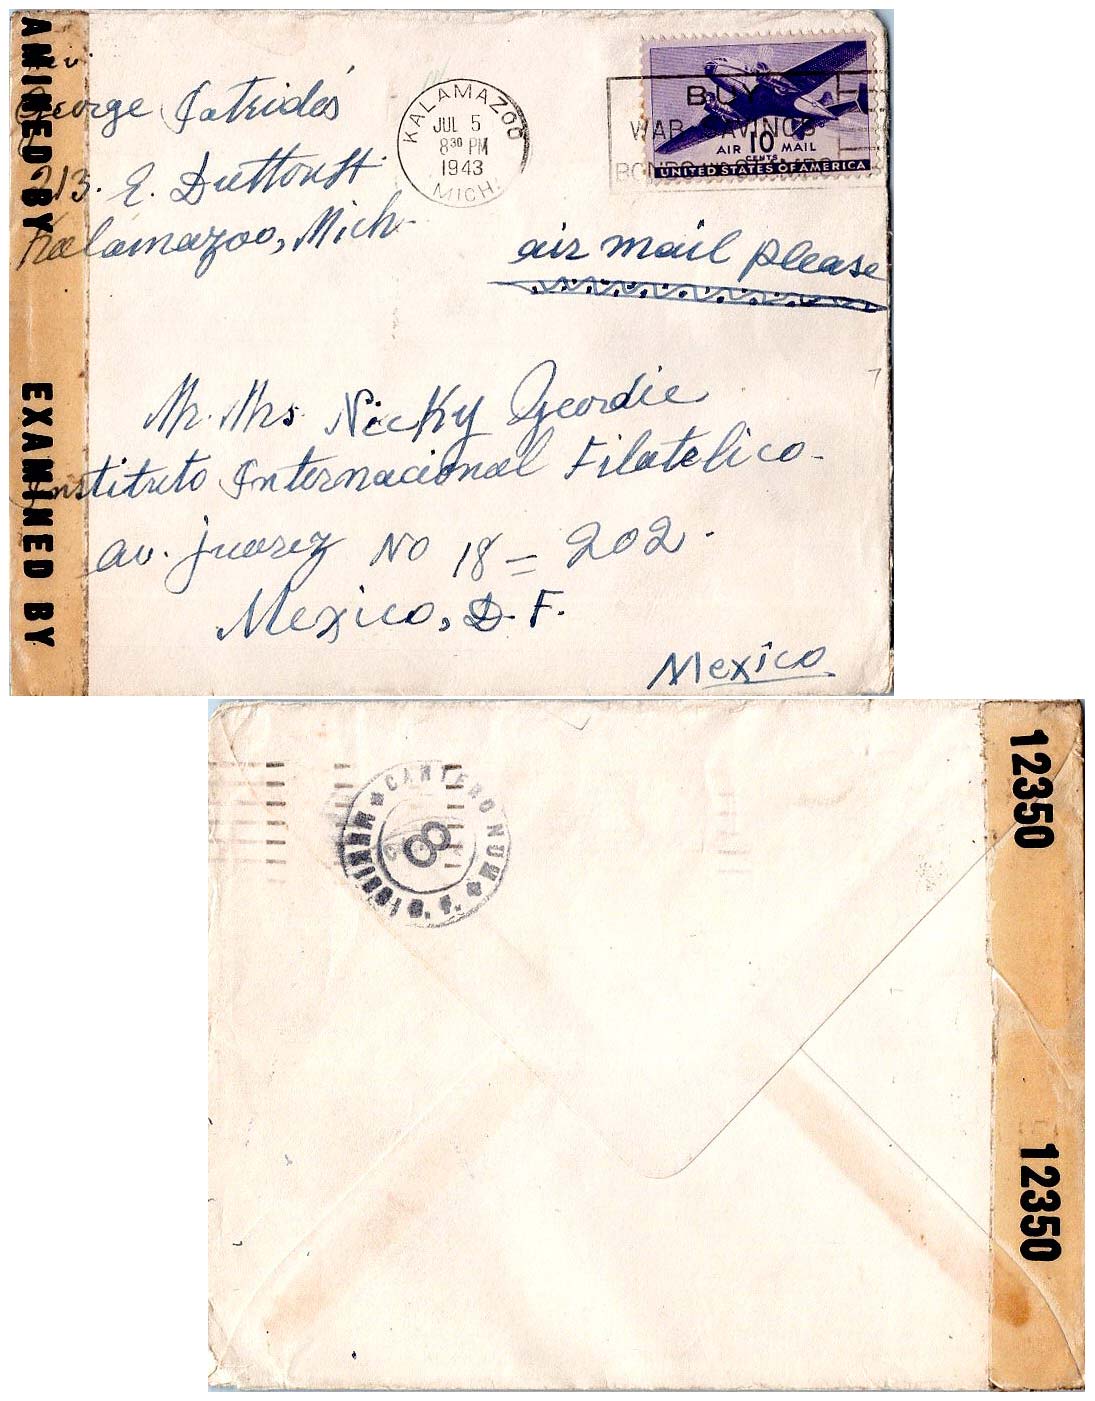 AMINED BY
EXAMINED BY
George
213. E. Dutton St
Kalamazoo, Mich.
KALAMAZOO
JUL 5
8 30 PM
1943
MICH.
BUY
WAR SAVINGS
BONDS
AIR 10 MAIL
CENTS
UNITED STATES OF AMERICA
air mail please
Mr. Mrs Nicky Geordie
Instituto Internacional Filatelico-
av. juarez No 18 = 202.
Mexico, D. F.
Mexico
CARTERO NUM
8
D. F.
12350
12350